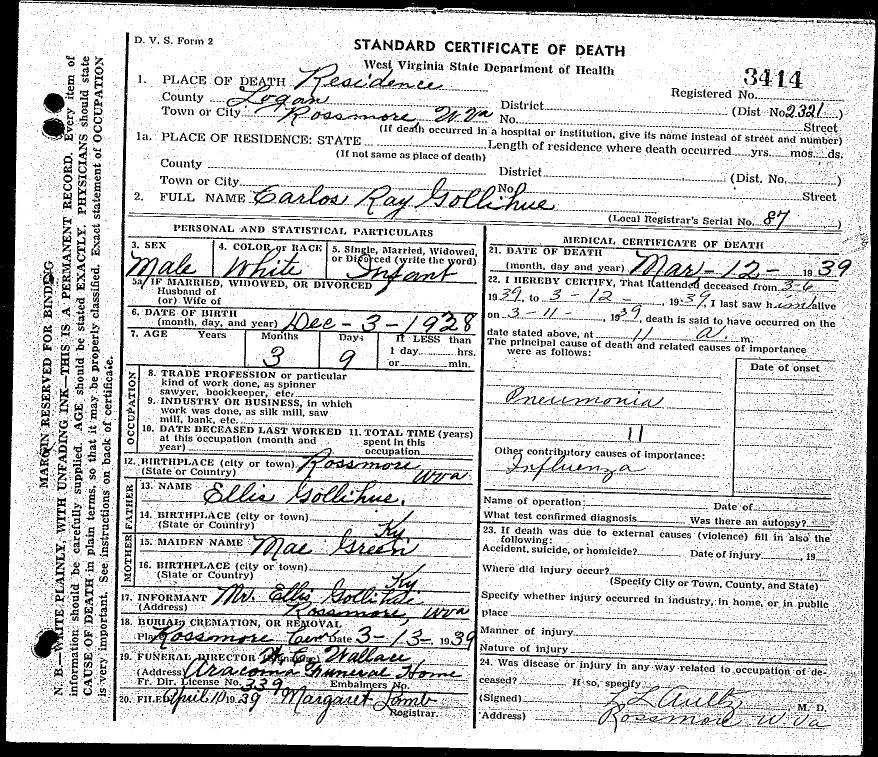 D. V. S. Form 2
STANDARD CERTIFICATE OF DEATH
West Virginia State Department of Health
3414
1. PLACE OF DEATH Residence Registered No.
County Logan District (Dist No. 2321)
Town or City Rossmore W. Va No. Street
(If death occurred in a hospital or institution, give its name instead of street and number)
1a. PLACE OF RESIDENCE: STATE Length of residence where death occurred yrs. mos. ds.
(If not same as place of death)
County District (Dist. No. )
Town or City No. Street
2. FULL NAME Carlos Ray Gollihue
(Local Registrar's Serial No. 87
PERSONAL AND STATISTICAL PARTICULARS
3. SEX Male
4. COLOR or RACE White
5. Single, Married, Widowed, or Divorced (write the word) Infant
5a. IF MARRIED, WIDOWED, OR DIVORCED
Husband of
(or) Wife of
6. DATE OF BIRTH
(month, day, and year) Dec-3-1928
7. AGE Years Months Days If LESS than
3 9 1 day hrs.
or min.
OCCUPATION
8. TRADE PROFESSION or particular
kind of work done, as spinner
sawyer, bookkeeper, etc.
9. INDUSTRY OR BUSINESS, in which
work was done, as silk mill, saw
mill, bank, etc.
10. DATE DECEASED LAST WORKED
at this occupation (month and
year)
11. TOTAL TIME (years)
spent in this
occupation
12. BIRTHPLACE (city or town) Rossmore
(State or Country) W va
FATHER
13. NAME Ellis Gollihue.
14. BIRTHPLACE (city or town)
(State or Country) Ky
MOTHER
15. MAIDEN NAME Mae Green
16. BIRTHPLACE (city or town)
(State or Country) Ky
17. INFORMANT Mr. Ellis Gollihue
(Address) Rossmore, W va
18. BURIAL, CREMATION, OR REMOVAL
Place Rossmore Cem Date 3-13-, 1939
19. FUNERAL DIRECTOR Wallace
(Address) Aracoma Funeral Home
Fr. Dir. License No. 339 Embalmers No.
20. FILED April 10 1939 Margaret Lamb
Registrar.
MEDICAL CERTIFICATE OF DEATH
21. DATE OF DEATH
(month, day and year) Mar-12- 1939
22. I HEREBY CERTIFY, That I attended deceased from 3-6
1939, to 3-12-, 1939, I last saw him alive
on 3-11-, 1939, death is said to have occurred on the
date stated above, at 11 a. m.
The principal cause of death and related causes of importance
were as follows:
Date of onset
Pneumonia
11
Other contributory causes of importance:
Influenza
Name of operation Date of
What test confirmed diagnosis Was there an autopsy?
23. If death was due to external causes (violence) fill in also the
following:
Accident, suicide, or homicide? Date of injury , 19
Where did injury occur?
(Specify City or Town, County, and State)
Specify whether injury occurred in industry, in home, or in public
place
Manner of injury
Nature of injury
24. Was disease or injury in any way related to occupation of de-
ceased? If so, specify
(Signed) M. D.
(Address) Rossmore W. Va
MARGIN RESERVED FOR BINDING
N. B.—WRITE PLAINLY, WITH UNFADING INK—THIS IS A PERMANENT RECORD. Every item of
information should be carefully supplied. AGE should be stated EXACTLY. PHYSICIANS should state
CAUSE OF DEATH in plain terms, so that it may be properly classified. Exact statement of OCCUPATION
is very important. See instructions on back of certificate.